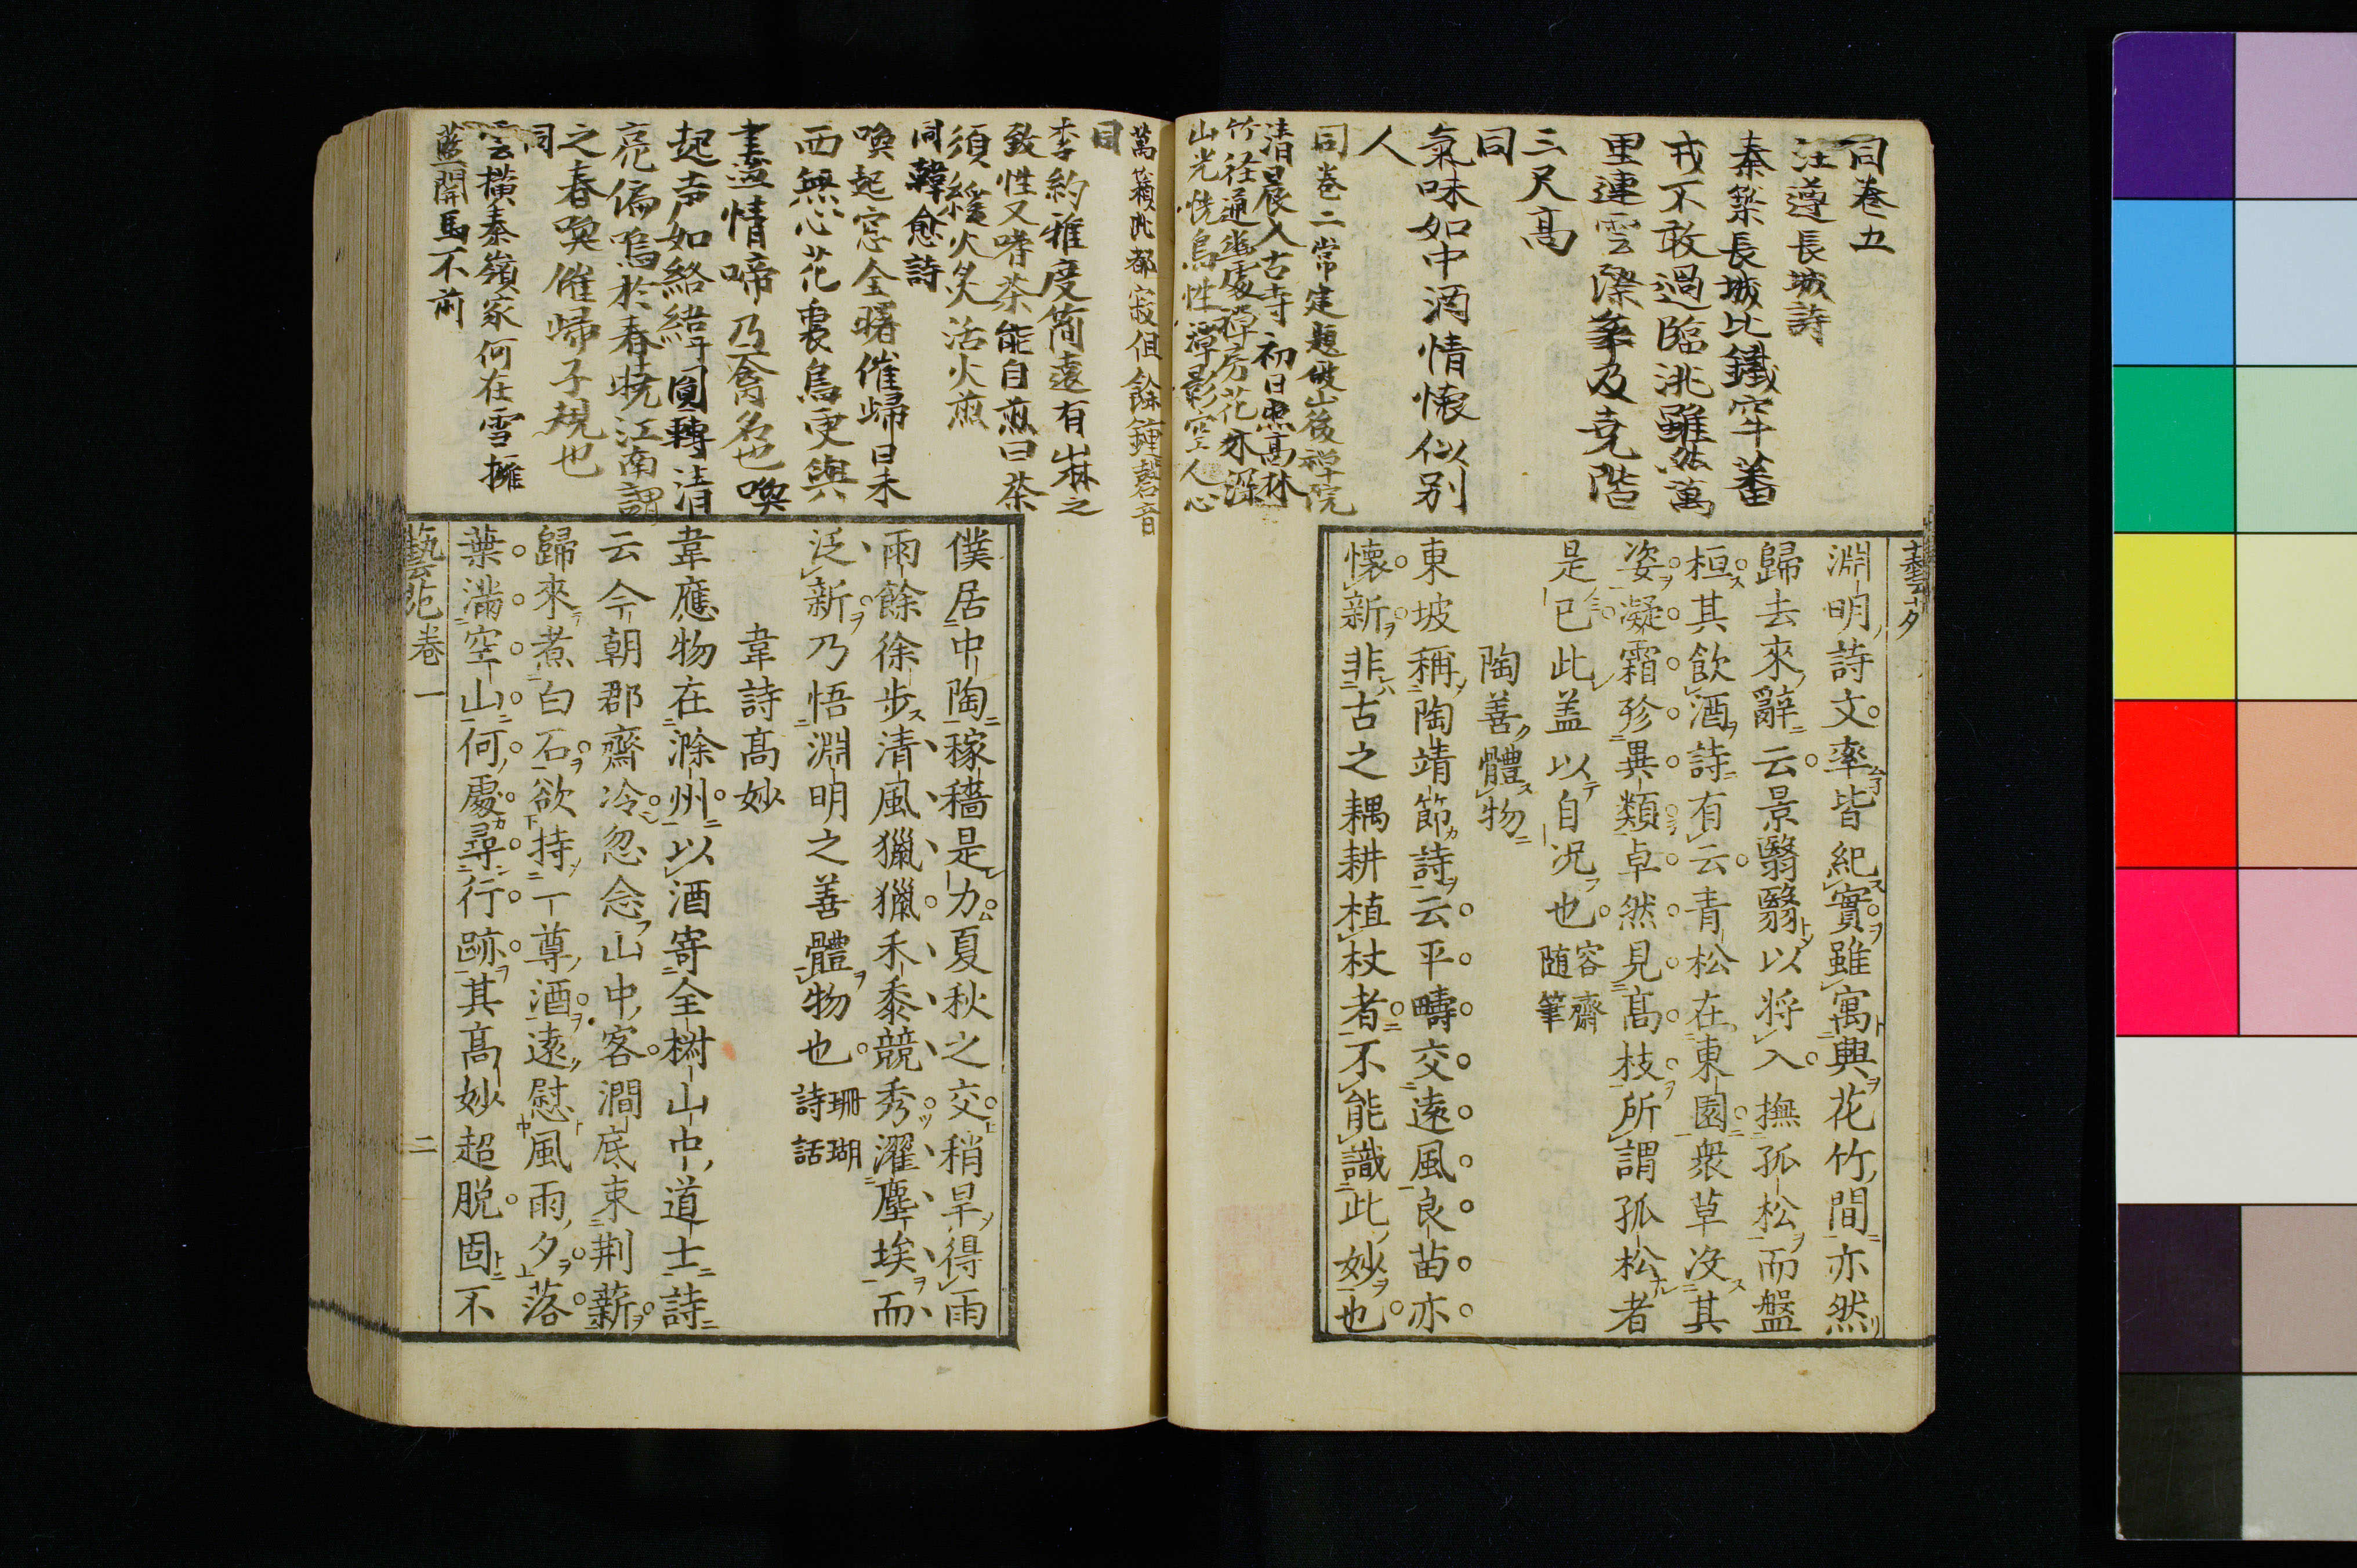 同卷五
汪遵長城詩
秦築長城比鐵牢蕃
戎不敢過臨洮雖然萬
里連雲際爭及尭階
三尺高
同
氣味如中酒情懷似别
人
同卷二常建題破山後禅院
清晨入古寺 初日照高林
竹径通幽處禅房花木深
山光悦鳥性潭影空人心
淵明詩文率皆紀實雖寓興花竹間亦然
歸去來辭云景翳翳以將入撫孤松而盤
桓其飲酒詩有云青松在東園衆草没其
姿凝霜殄異類卓然見高枝所謂孤松者
是已此盖以自况也容齋随筆
陶善體物
東坡稱陶靖節詩云平疇交遠風良苗亦
懷新非古之耦耕植杖者不能識此妙也
萬籟此都寂但餘鍾磬音
同
李約雅度簡遠有山林之
致性又嗜茶能自煎曰茶
須緩火炙活火煎
同韓愈詩
喚起窓全曙催帰日未
西無心花裏鳥更與
盡情啼乃禽名也喚
起声如絡緯圓轉清
亮偏鳴於春暁江南謂
之春喚催帰子規也
同
雲横秦嶺家何在雪擁
藍開馬不前
僕居中陶稼穡是力夏秋之交稍旱得雨
雨餘徐步清風獵獵禾黍競秀濯塵埃而
泛新乃悟淵明之善體物也珊瑚詩話
韋詩高妙
韋應物在滁州以酒寄全樹山中道士詩
云今朝郡齋冷忽念山中客澗底束荆薪
歸來煮白石欲持一尊酒遠慰風雨夕落
葉滿空山何處尋行跡其高妙超脱固不
藝苑卷一 二